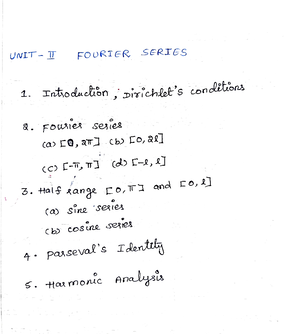 UNIT - II FOURIER SERIES
1. Introduction, Dirichlet's conditions
2. Fourier series
(a) [0, 2π] (b) [0, 2l]
(c) [-π, π] (d) [-l, l]
3. Half range [0, π] and [0, l]
(a) sine series
(b) cosine series
4. Parseval's Identity
5. Harmonic Analysis